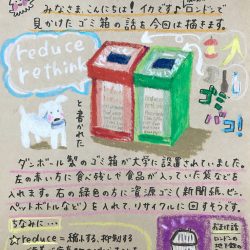 みなさま、こんにちは！イカです♪ロンドンで
見かけたゴミ箱の話を今回は描きます。
reduce
rethink
と書かれた
ゴミ
バコ！
ダンボール製のゴミ箱が大学に設置されていました。
左の赤い方に食べ残しや食品が入っていた袋などを
入れます。右の緑色の方に資源ゴミ（新聞紙、ビン、
ペットボトルなど）を入れて、リサイクルに回すそうです。
ちなみに…
☆reduce=縮小する、抑制する
おまけ話
ロンドンの
地下鉄の